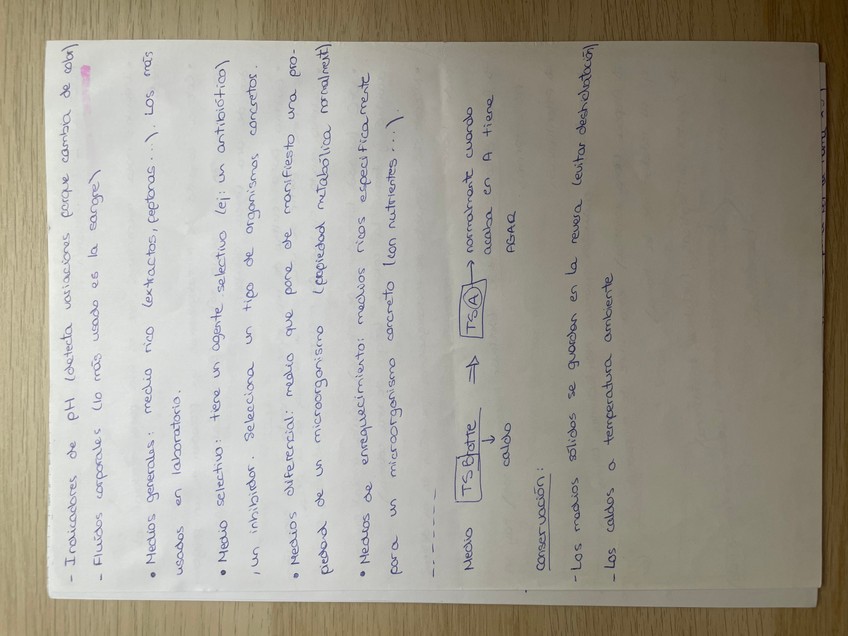 - Indicadores de pH (detecta variaciones porque cambia de color)
- Fluidos corporales (lo más usado es la sangre)
• Medios generales: medio rico (extractos, peptonas...). Los más
usados en laboratorio.
• Medio selectivo: tiene un agente selectivo (ej: un antibiótico)
, un inhibidor. Selecciona un tipo de organismos concretos.
• Medios diferencial: medio que pone de manifiesto una pro-
piedad de un microorganismo (propiedad metabólica normalment)
• Medios de enriquecimiento: medios ricos específicamente
para un microorganismo concreto (con nutrientes...).
-------
Medio TSBrotte ⇒ TSA → normalmente cuando
↓ acaba en A tiene
caldo AGAR
Conservación:
- Los medios sólidos se guardan en la nevera (evitar deshidratación)
- Los caldos a temperatura ambiente